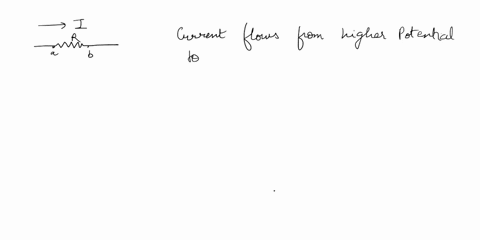 I
R
a b
Current flows from higher Potential
to